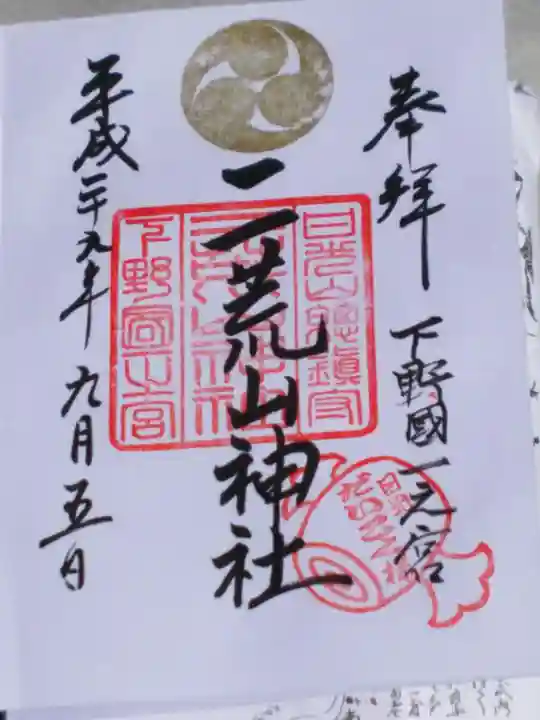 奉拝
下野國一之宮
日光山総鎮守
二荒山神社
下野國一之宮
平成二十九年
九月五日